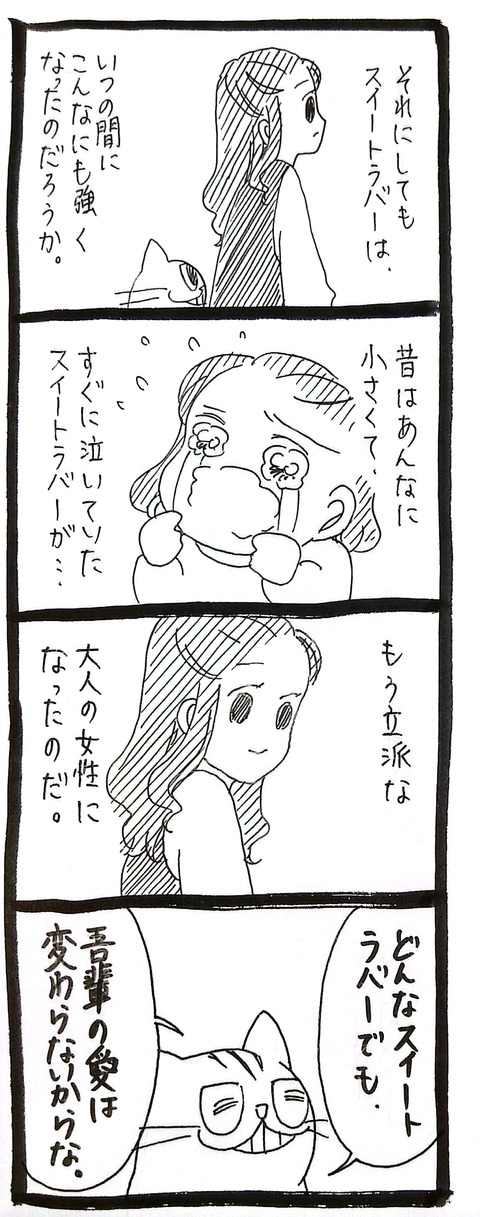 それにしても
スイートラバーは、
いつの間に
こんなにも強く
なったのだろうか。
昔はあんなに
小さくて、
すぐに泣いていた
スイートラバーが…
もう立派な
大人の女性に
なったのだ。
どんなスイート
ラバーでも、
吾輩の愛は
変わらないからな。